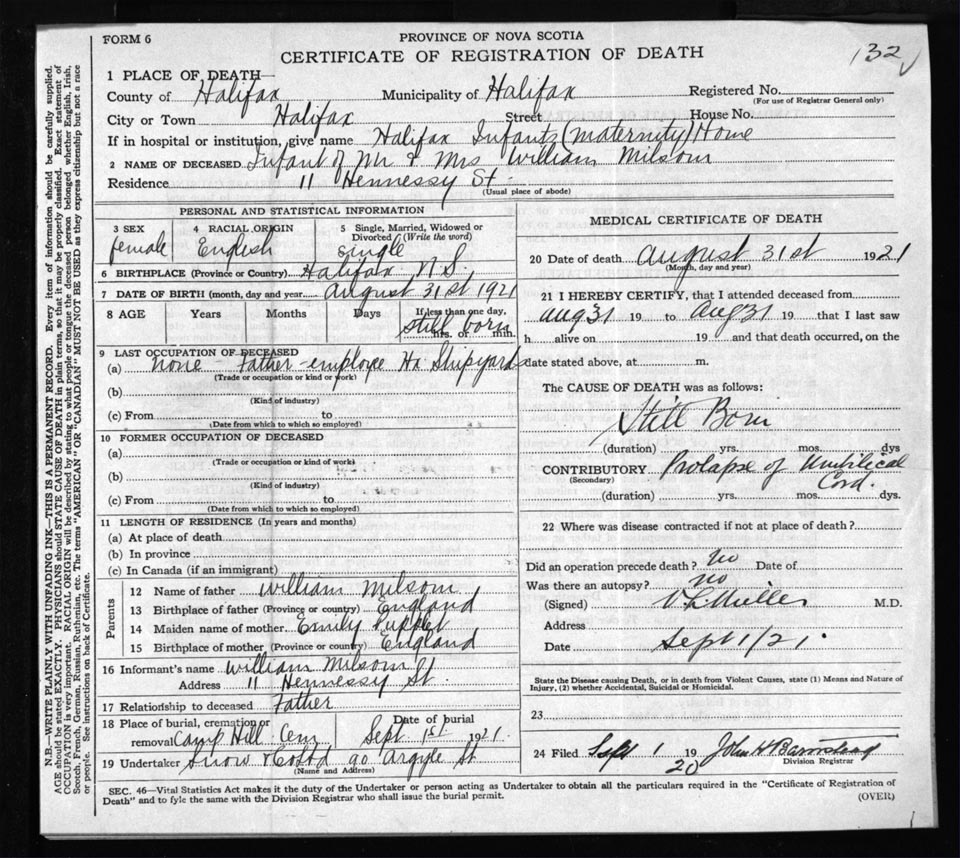 FORM 6
PROVINCE OF NOVA SCOTIA
CERTIFICATE OF REGISTRATION OF DEATH
132
1 PLACE OF DEATH
County of Halifax Municipality of Halifax Registered No.
(For use of Registrar General only)
City or Town Halifax Street House No.
If in hospital or institution, give name Halifax Infants (Maternity) Home
2 NAME OF DECEASED Infant of Mr & Mrs William Milsom
Residence 11 Hennessy St.
(Usual place of abode)
PERSONAL AND STATISTICAL INFORMATION
3 SEX female
4 RACIAL ORIGIN English
5 Single, Married, Widowed or Divorced (Write the word) single
6 BIRTHPLACE (Province or Country) Halifax N.S.
7 DATE OF BIRTH (month, day and year August 31st 1921
8 AGE Years Months Days If less than one day, still born hrs. or min.
9 LAST OCCUPATION OF DECEASED
(a) none - Father - employe Hx Shipyards
(Trade or occupation or kind or work)
(b)
(Kind of industry)
(c) From to
(Date from which to which so employed)
10 FORMER OCCUPATION OF DECEASED
(a)
(Trade or occupation or kind of work)
(b)
(Kind of industry)
(c) From to
(Date from which to which so employed)
11 LENGTH OF RESIDENCE (In years and months)
(a) At place of death
(b) In province
(c) In Canada (if an immigrant)
Parents
12 Name of father William Milsom
13 Birthplace of father (Province or country) England
14 Maiden name of mother Emily
15 Birthplace of mother (Province or country) England
16 Informant's name William Milsom
Address 11 Hennessy St.
17 Relationship to deceased Father
18 Place of burial, cremation or removal Camp Hill Cem Date of burial Sept 1st 1921.
19 Undertaker Snow & Co Ltd 90 Argyle St
(Name and Address)
MEDICAL CERTIFICATE OF DEATH
20 Date of death August 31st 1921
(Month, day and year)
21 I HEREBY CERTIFY, that I attended deceased from
Aug 31 19 to Aug 31 19 that I last saw
h alive on 19 and that death occurred, on the
date stated above, at m.
The CAUSE OF DEATH was as follows:
Still Born
(duration) yrs. mos. dys
CONTRIBUTORY Prolapse of Umbilical Cord.
(Secondary)
(duration) yrs. mos. dys.
22 Where was disease contracted if not at place of death?
Did an operation precede death? no Date of
Was there an autopsy? no
(Signed) Miller M.D.
Address
Date Sept 1/21.
State the Disease causing Death, or in death from Violent Causes, state (1) Means and Nature of
Injury, (2) whether Accidental, Suicidal or Homicidal.
23
24 Filed Sept 1 1920 John H Barnstead
Division Registrar
SEC. 46—Vital Statistics Act makes it the duty of the Undertaker or person acting as Undertaker to obtain all the particulars required in the "Certificate of Registration of
Death" and to fyle the same with the Division Registrar who shall issue the burial permit.
(OVER)
N.B.—WRITE PLAINLY WITH UNFADING INK—THIS IS A PERMANENT RECORD. Every item of information should be carefully supplied.
AGE should be stated EXACTLY. PHYSICIANS should STATE CAUSE OF DEATH in plain terms, so that it may be properly classified. Exact statement of
OCCUPATION is very important. RACIAL ORIGIN will be described by stating to what people or tongue the deceased person belonged whether English, Irish,
Scotch, French, German, Russian, Ruthenian, etc. The terms "AMERICAN" OR "CANADIAN" MUST NOT BE USED as they express citizenship but not a race
or people. See instructions on back of Certificate.